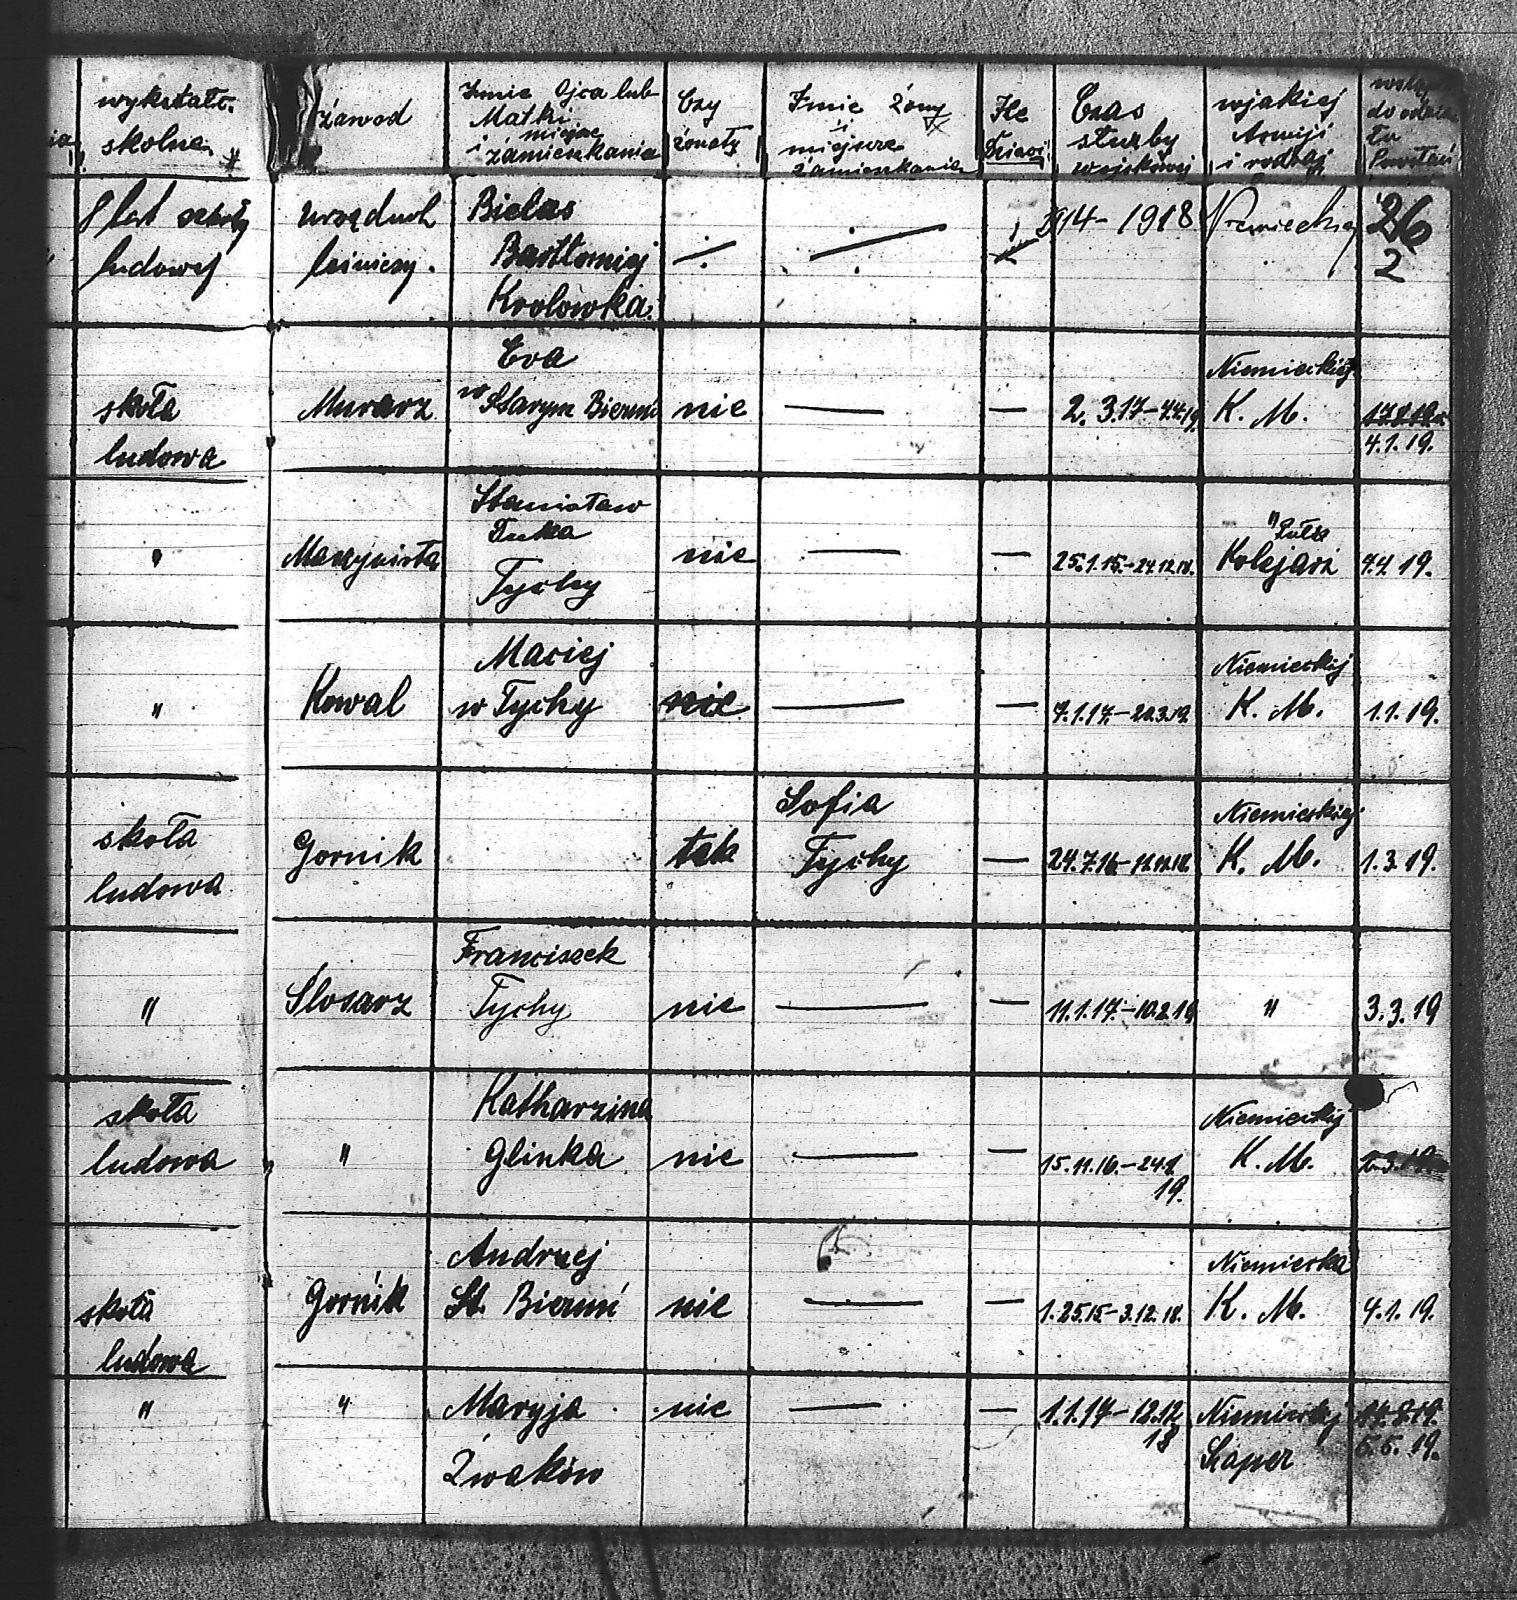 wykształc. skolne
zawod
Imie Ojca lub Matki i miejsce zamieszkania
Czy żonaty
Imie Żony i miejsce zamieszkania
Ile Dzieci
Czas służby wojskowej
wjakiej Armji i rodzaj
do
Powstań
8 lat szkoły ludowej
urzędnik leśniczy.
Bielas Bartłomiej Krolowka.
1914 - 1918
Niemieckiej
26
2
skoła ludowa
Murarz
Eva w Starym Bieruniu
nie
—
—
2. 3.17 - 4.4.19.
Niemieckiej K. M.
4.1.19.
"
Maszynista
Stanisław Tychy
nie
—
—
25.1.15. - 24.12.18.
" Kolejarz
4.4.19.
"
Kowal
Maciej w Tychy
nie
—
—
7.1.17. - 20.3.19.
Niemieckiej K. M.
1.1.19.
skoła ludowa
Gornik
tak
Sofia Tychy
—
24.7.16 -
Niemieckiej K. M.
1.3.19.
"
Ślosarz
Franciszek Tychy
nie
—
—
11.1.17. - 10.2.19
"
3.3.19
skoła ludowa
"
Katharzina Glinka
nie
—
—
15.11.16. - 24.1.19.
Niemieckiej K. M.
skoła ludowa
Gornik
Andrzej St. Bieruń
nie
—
—
1.25.15 - 3.12.18.
Niemiecka K. M.
4.1.19.
"
"
Maryja Żwaków
nie
—
—
1.1.17 - 12.12.18
Niemieckiej Saper
17.8.19.
5.5.19.